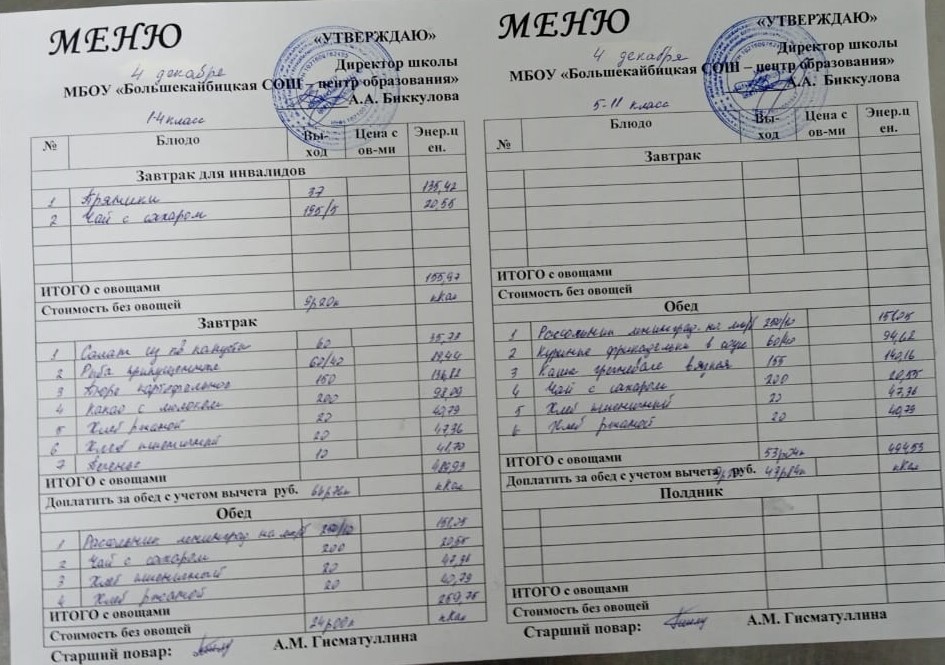 МЕНЮ
«УТВЕРЖДАЮ»
Директор школы
4 декабря
МБОУ «Большекайбицкая СОШ – центр образования»
А.А. Биккулова
1-4 класс
№ Блюдо Вы-ход Цена с ов-ми Энер.ц ен.
Завтрак для инвалидов
1 Пряники 37 135,42
2 Чай с сахаром 195/5 20,55
ИТОГО с овощами 155,97
Стоимость без овощей 9р20к кКал
Завтрак
1 Салат из капусты 60 35,78
2 Рыба припущенная
3 Пюре картофельное 150
4 Какао с молоком 200
5 Хлеб ржаной 20 40,79
6 Хлеб пшеничный 20 47,36
7 Печенье
ИТОГО с овощами
Доплатить за обед с учетом вычета руб. кКал
Обед
1 Рассольник ленинград на м/б 250/10 151,75
2 Чай с сахаром 200 20,55
3 Хлеб пшеничный 20 47,36
4 Хлеб ржаной 20 40,79
ИТОГО с овощами
Стоимость без овощей 24р00к кКал
Старший повар: А.М. Гисматуллина
МЕНЮ
«УТВЕРЖДАЮ»
Директор школы
4 декабря
МБОУ «Большекайбицкая СОШ – центр образования»
А.А. Биккулова
5-11 класс
№ Блюдо Вы-ход Цена с ов-ми Энер.ц ен.
Завтрак
ИТОГО с овощами
Стоимость без овощей
Обед
1 Рассольник ленинград на м/б 250/10 151,75
2 Куриные фрикадельки в соусе 94,62
3 Каша гречневая вязкая 155
4 Чай с сахаром 200 20,55
5 Хлеб пшеничный 20 47,36
6 Хлеб ржаной 20 40,79
ИТОГО с овощами 494,53
Доплатить за обед с учетом вычета руб. кКал
Полдник
ИТОГО с овощами
Стоимость без овощей
Старший повар: А.М. Гисматуллина